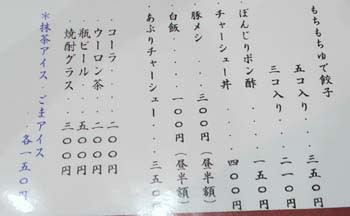 もちもちゆで餃子
五コ入り・・・三五〇円
三コ入り・・・二一〇円
ぼんじりポン酢・・・一五〇円
チャーシュー丼・・・四〇〇円
豚メシ・・・三〇〇円(昼半額)
白飯・・・一〇〇円(昼半額)
あぶりチャーシュー・・・三五〇円
コーラ・・・二〇〇円
ウーロン茶・・・二〇〇円
瓶ビール・・・五〇〇円
焼酎グラス・・・三〇〇円
*抹茶アイス・ごまアイス
・・各一五〇円